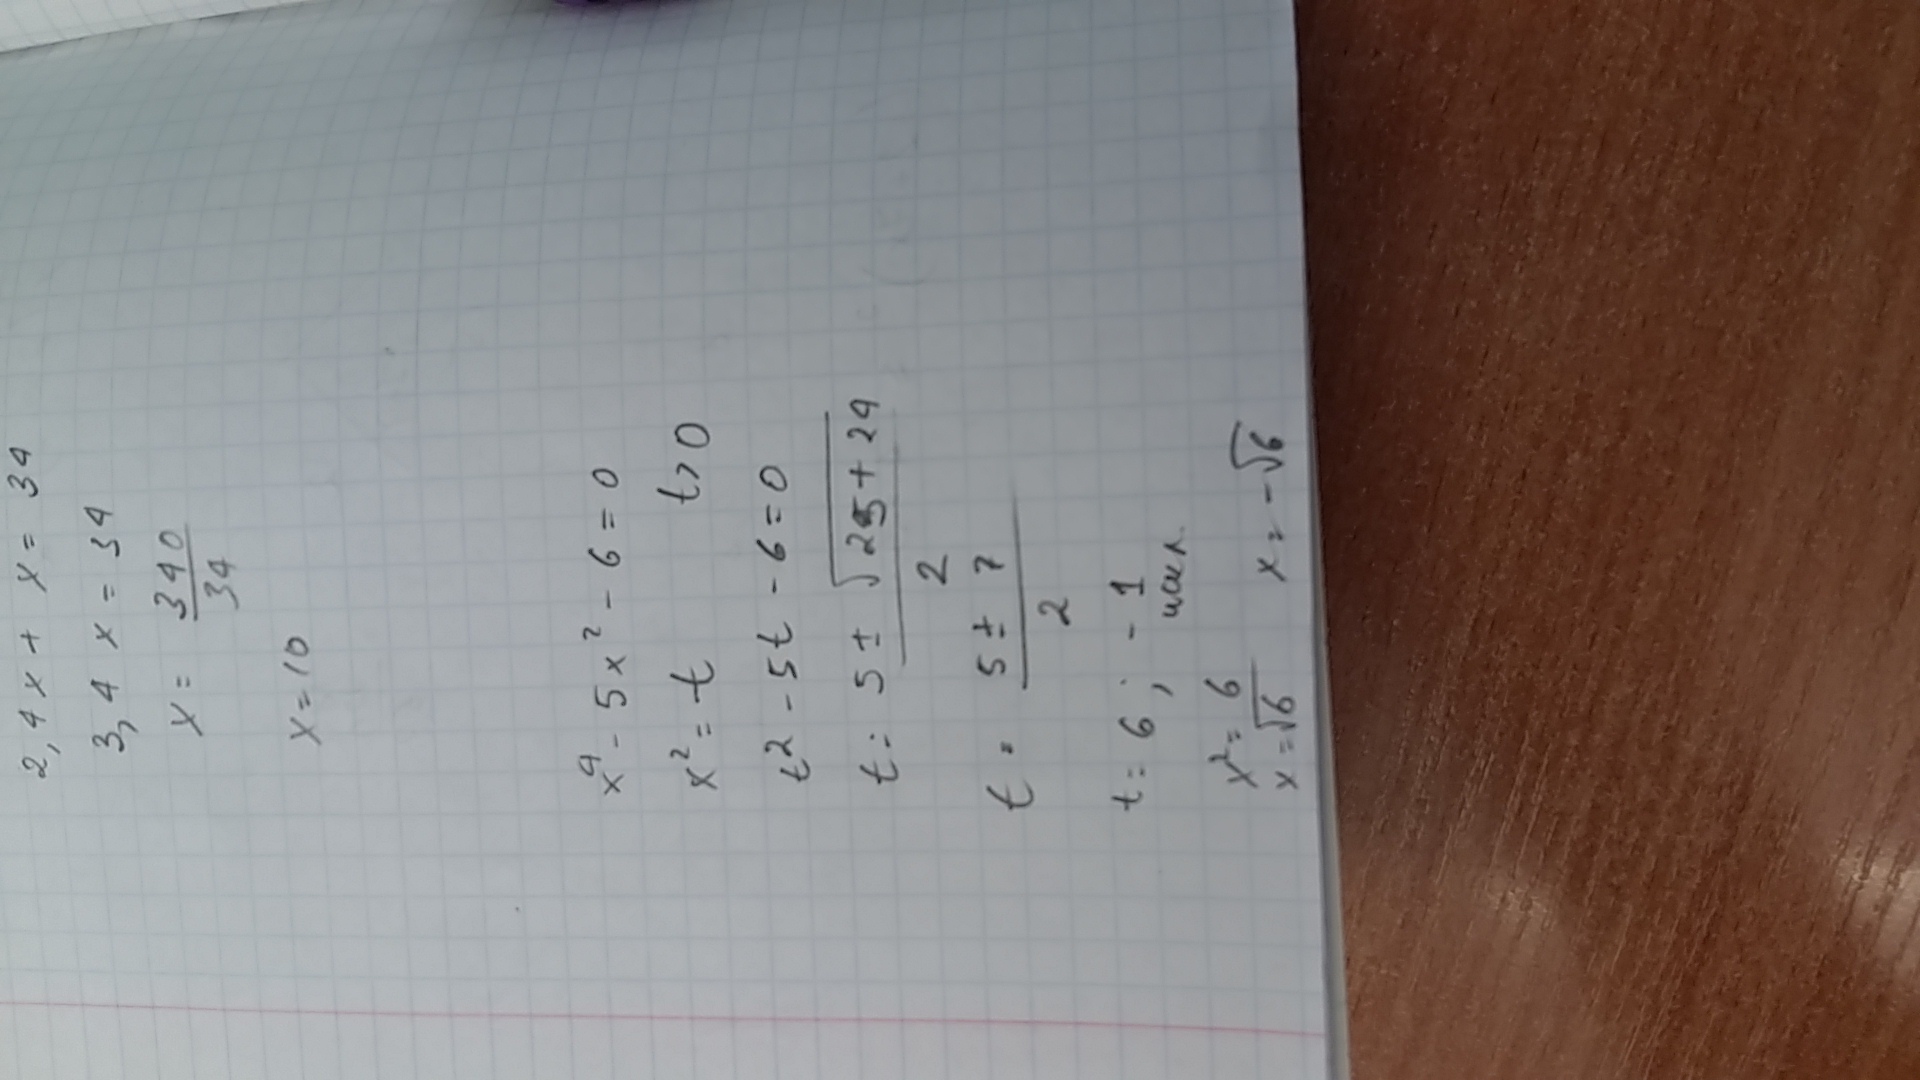 2,4x + x = 34
3,4x = 34
x = 340/34
x = 10
x⁴ - 5x² - 6 = 0
x² = t t > 0
t2 - 5t - 6 = 0
t = 5 ± √25 + 24 / 2
t = 5 ± 7 / 2
t = 6 ; - 1
искл.
x² = 6
x = √6 x = -√6